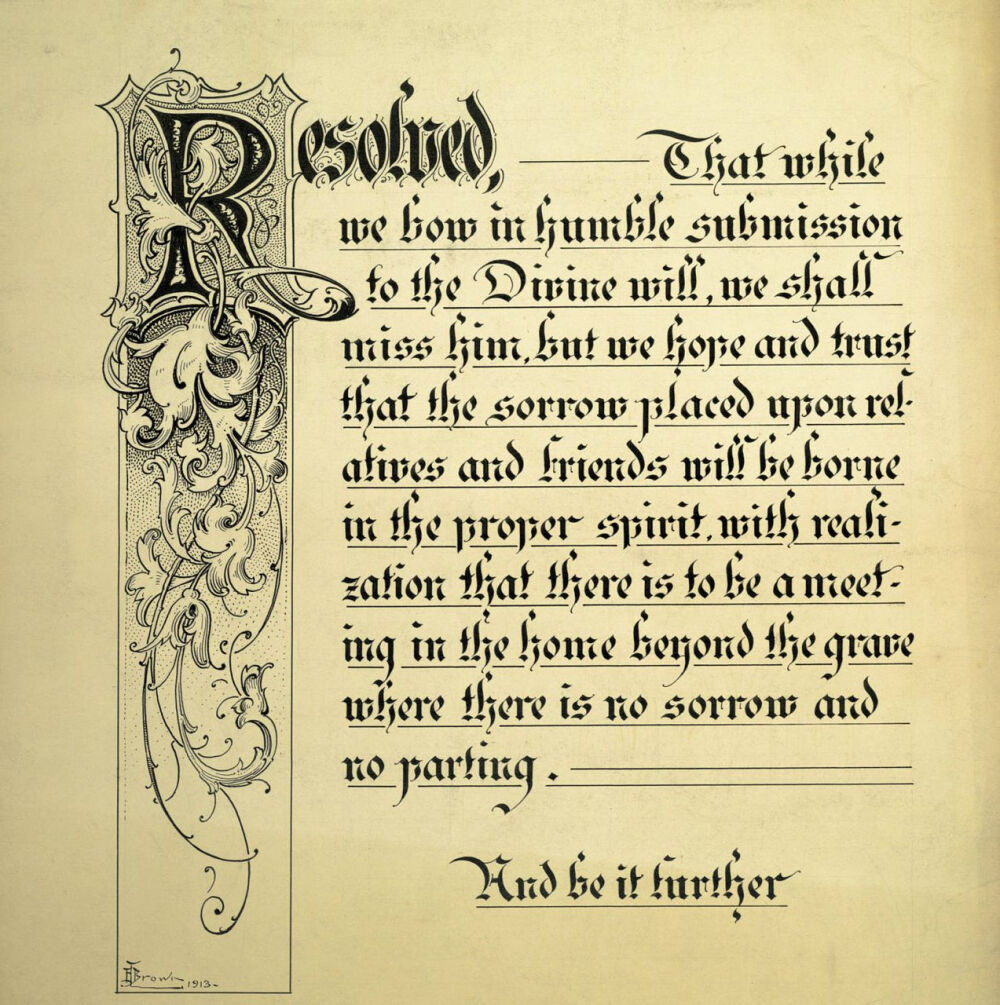 Resolved, That while
we bow in humble submission
to the Divine will, we shall
miss him, but we hope and trust
that the sorrow placed upon rel-
atives and friends will be borne
in the proper spirit, with reali-
zation that there is to be a meet-
ing in the home beyond the grave
where there is no sorrow and
no parting.
And be it further
Brown 1913-